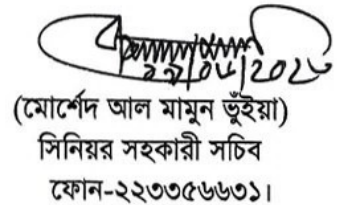 (মোর্শেদ আল মামুন ভূঁইয়া)
সিনিয়র সহকারী সচিব
ফোন-২২৩৩৫৬৬৩১।